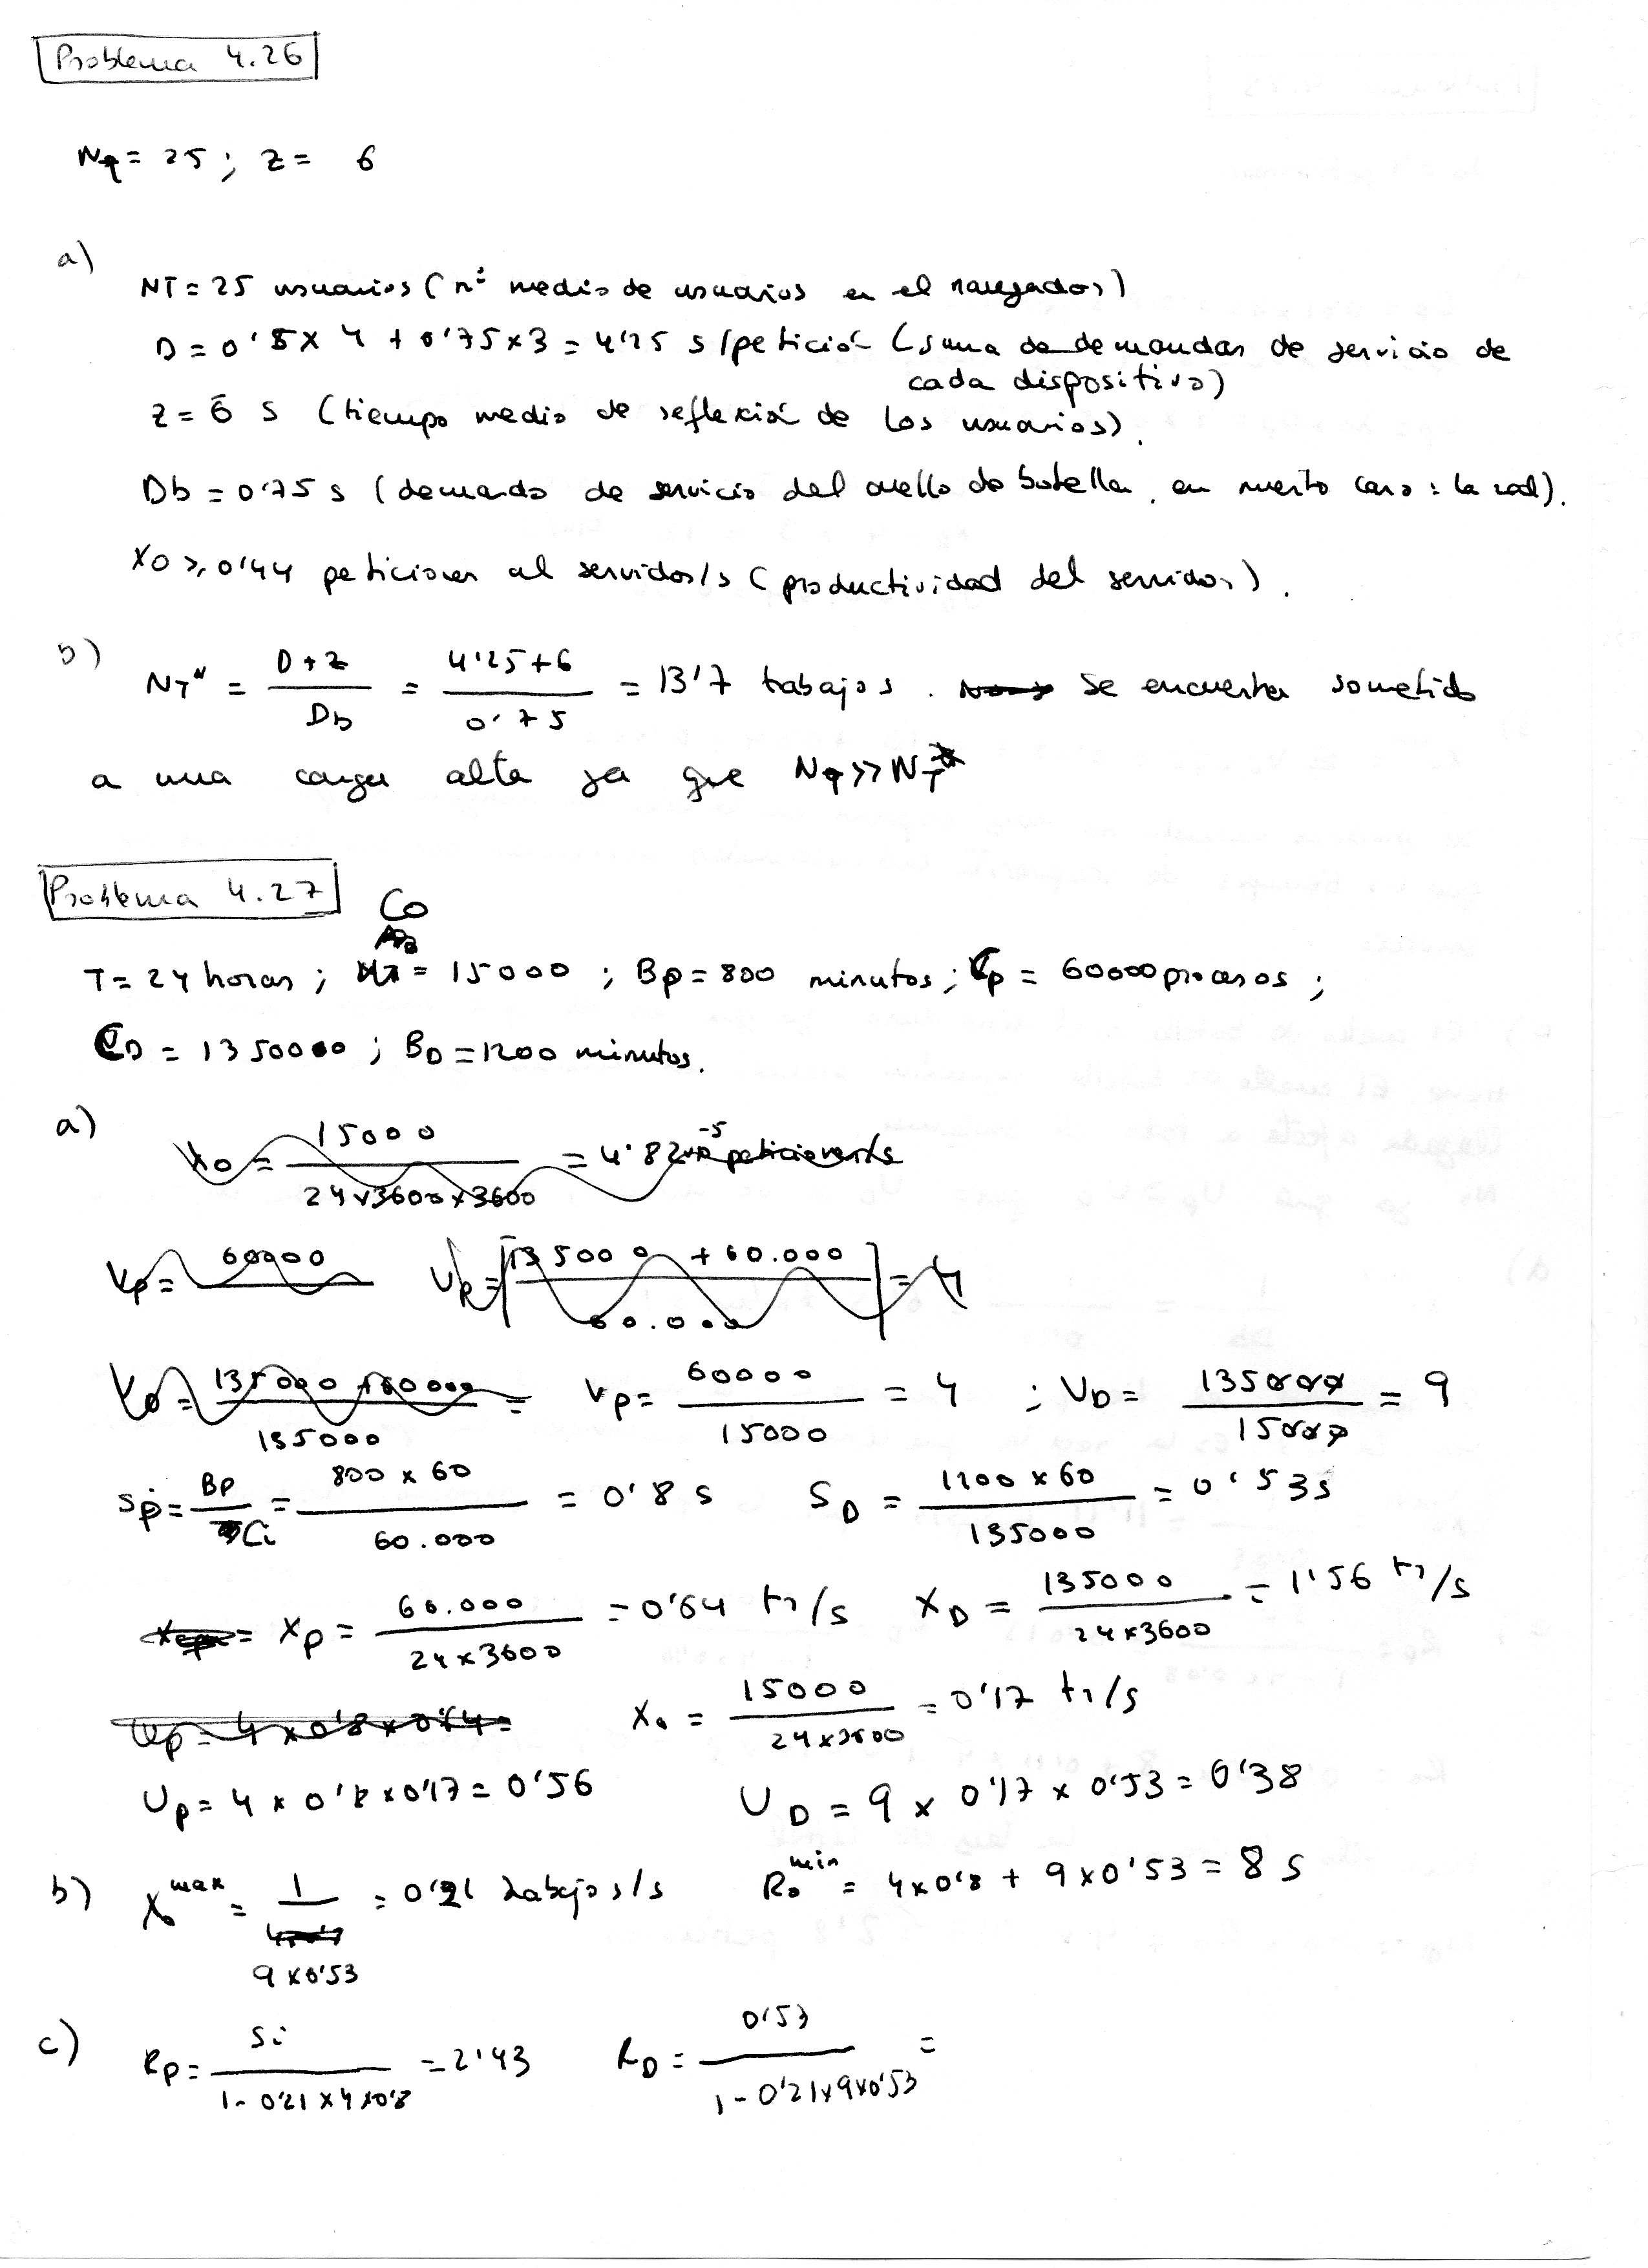 Problema 4.26
NT = 25 ; Z = 6
a)
NT = 25 usuarios (nº medio de usuarios en el navegador)
D = 0'5 x 4 + 0'75 x 3 = 4'25 s/petición (suma de demandas de servicio de
cada dispositivo)
Z = 6 s (tiempo medio de reflexión de los usuarios).
Db = 0'75 s (demanda de servicio del cuello de botella, en nuestro caso: la red).
X0 ≥ 0'44 peticiones al servidor/s (productividad del servidor).
b) NT* = (D+Z)/Db = (4'25+6)/0'75 = 13'7 trabajos. Se encuentra sometido
a una carga alta ya que NT >> NT*
Problema 4.27
Co
T = 24 horas ; = 15000 ; Bp = 800 minutos ; Cp = 60000 procesos ;
CD = 1350000 ; BD = 1200 minutos.
a) X0 = 15000/(24x3600x3600) = 4'82x10^-5 peticiones/s
Vp = 60000 VR = [(13500 + 60.000)/60.000] = 4
VD = (135000 +60000)/135000 = Vp = 60000/15000 = 4 ; VD = 135000/15000 = 9
Sp = Bp/Ci = (800 x 60)/60.000 = 0'8 s SD = (1200 x 60)/135000 = 0'53 s
Xp = 60.000/(24x3600) = 0'64 tr/s XD = 135000/(24x3600) = 1'56 tr/s
Up = 4 x 0'8 x 0'64 = X0 = 15000/(24x3600) = 0'17 tr/s
Up = 4 x 0'8 x 0'17 = 0'56 UD = 9 x 0'17 x 0'53 = 0'38
b) X0^max = 1/(9x0'53) = 0'21 trabajos/s R0^min = 4x0'8 + 9x0'53 = 8 s
c) Rp = Si/(1-0'21x4x0'8) = 2'43 RD = 0'53/(1-0'21x9x0'53) =